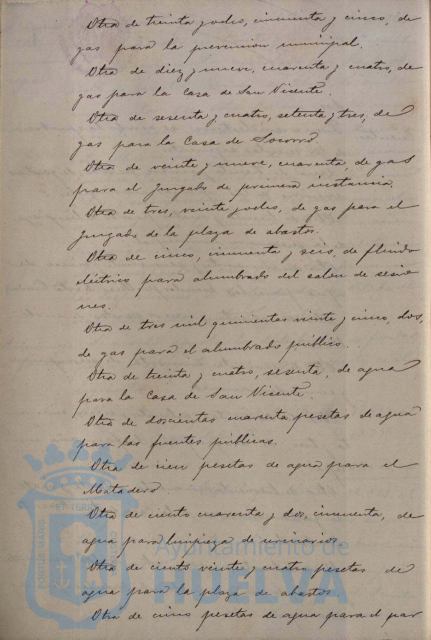 Otra de treinta y ocho, cincuenta y cinco, de
gas para la prevención municipal.
Otra de diez y nueve, cuarenta y cuatro, de
gas para la Casa de San Vicente.
Otra de sesenta y cuatro, setenta y tres, de
gas para la Casa de Socorro
Otra de veinte y nueve, cuarenta de gas
para el Juzgado de primera instancia
Otra de tres, veinte y ocho, de gas para el
Juzgado de la plaza de abastos.
Otra de cinco, cincuenta y seis, de fluido
eléctrico para alumbrado del salon de sesio
nes.
Otra de tres mil quinientas veinte y cinco, dos,
de gas para el alumbrado público.
Otra de treinta y cuatro, sesenta, de agua
para la Casa de San Vicente.
Otra de doscientas cuarenta pesetas de agua
para las fuentes publicas.
Otra de cien pesetas de agua para el
Matadero
Otra de ciento cuarenta y dos, cincuenta, de
agua para limpieza de urinarios
Otra de ciento veinte y cuatro pesetas de
agua para la plaza de abastos
Otra de cinco pesetas de agua para el par
Ayuntamiento de
HUELVA